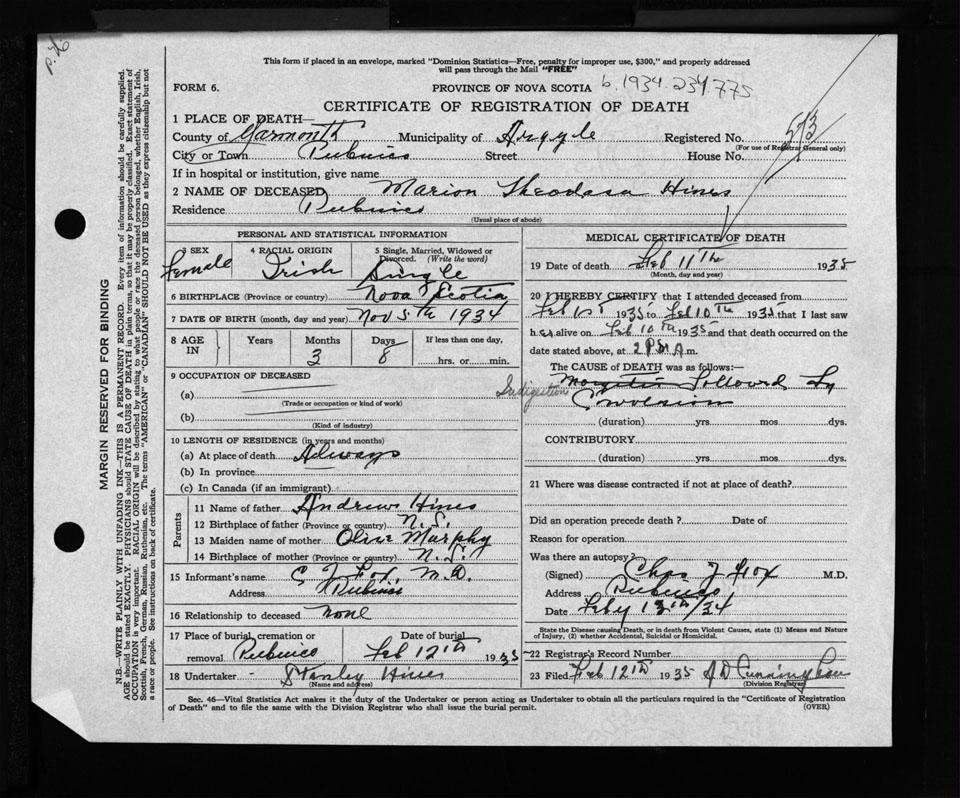 P. L.
This form if placed in an envelope, marked "Dominion Statistics—Free, penalty for improper use, $300," and properly addressed
will pass through the Mail "FREE"
FORM 6.
PROVINCE OF NOVA SCOTIA b. 1934.234.775
CERTIFICATE OF REGISTRATION OF DEATH
1 PLACE OF DEATH—
County of Yarmouth Municipality of Argyle Registered No. 573
(For use of Registrar General only)
City or Town Pubnico Street House No.
If in hospital or institution, give name
2 NAME OF DECEASED Marion Theodasa Hines
Residence Pubnico
(Usual place of abode)
PERSONAL AND STATISTICAL INFORMATION
3 SEX Female
4 RACIAL ORIGIN Irish
5 Single, Married, Widowed or
Divorced. (Write the word)
Single
6 BIRTHPLACE (Province or country) Nova Scotia
7 DATE OF BIRTH (month, day and year) Nov 5th 1934
8 AGE IN Years Months 3 Days 8 If less than one day,
hrs. or min.
9 OCCUPATION OF DECEASED
(a)
(Trade or occupation or kind of work)
(b)
(Kind of industry)
10 LENGTH OF RESIDENCE (in years and months)
(a) At place of death Always
(b) In province
(c) In Canada (if an immigrant)
Parents
11 Name of father Andrew Hines
12 Birthplace of father (Province or country) N.S.
13 Maiden name of mother Olive Murphy
14 Birthplace of mother (Province or country) N.S.
15 Informant's name C J Fox, M.D.
Address Pubnico
16 Relationship to deceased None
17 Place of burial, cremation or
removal Pubnico
Date of burial
Feb 12th 1935
18 Undertaker Stanley Hines
(Name and address)
MEDICAL CERTIFICATE OF DEATH
19 Date of death Feb 11th 1935
(Month, day and year)
20 I HEREBY CERTIFY that I attended deceased from
Feb 1st 1935 to Feb 10th 1935 that I last saw
h er alive on Feb 10th 1935 and that death occurred on the
date stated above, at 2 m.
The CAUSE of DEATH was as follows:—
Indigestion followed by
Convulsion
(duration) yrs. mos. dys.
CONTRIBUTORY
(duration) yrs. mos. dys.
21 Where was disease contracted if not at place of death?
Did an operation precede death? Date of
Reason for operation
Was there an autopsy?
(Signed) Chas J Fox M.D.
Address Pubnico
Date Feby 12th/34
State the Disease causing Death, or in Death from Violent Causes, state (1) Means and Nature
of Injury, (2) whether Accidental, Suicidal or Homicidal.
22 Registrar's Record Number
23 Filed Feb 12th 1935
(Division Registrar)
Sec. 46—Vital Statistics Act makes it the duty of the Undertaker or person acting as Undertaker to obtain all the particulars required in the "Certificate of Registration
of Death" and to file the same with the Division Registrar who shall issue the burial permit.
(OVER)
MARGIN RESERVED FOR BINDING
N.B.—WRITE PLAINLY WITH UNFADING INK—THIS IS A PERMANENT RECORD. Every item of information should be carefully supplied.
AGE should be stated EXACTLY. PHYSICIANS should STATE CAUSE OF DEATH in plain terms, so that it may be properly classified. Exact statement of
OCCUPATION is very important. RACIAL ORIGIN will be described by stating to what people or race the deceased person belonged, whether English, Irish,
Scottish, French, German, Russian, Ruthenian, etc. The terms "AMERICAN" or "CANADIAN" SHOULD NOT BE USED as they express citizenship but not
a race or people. See instructions on back of certificate.